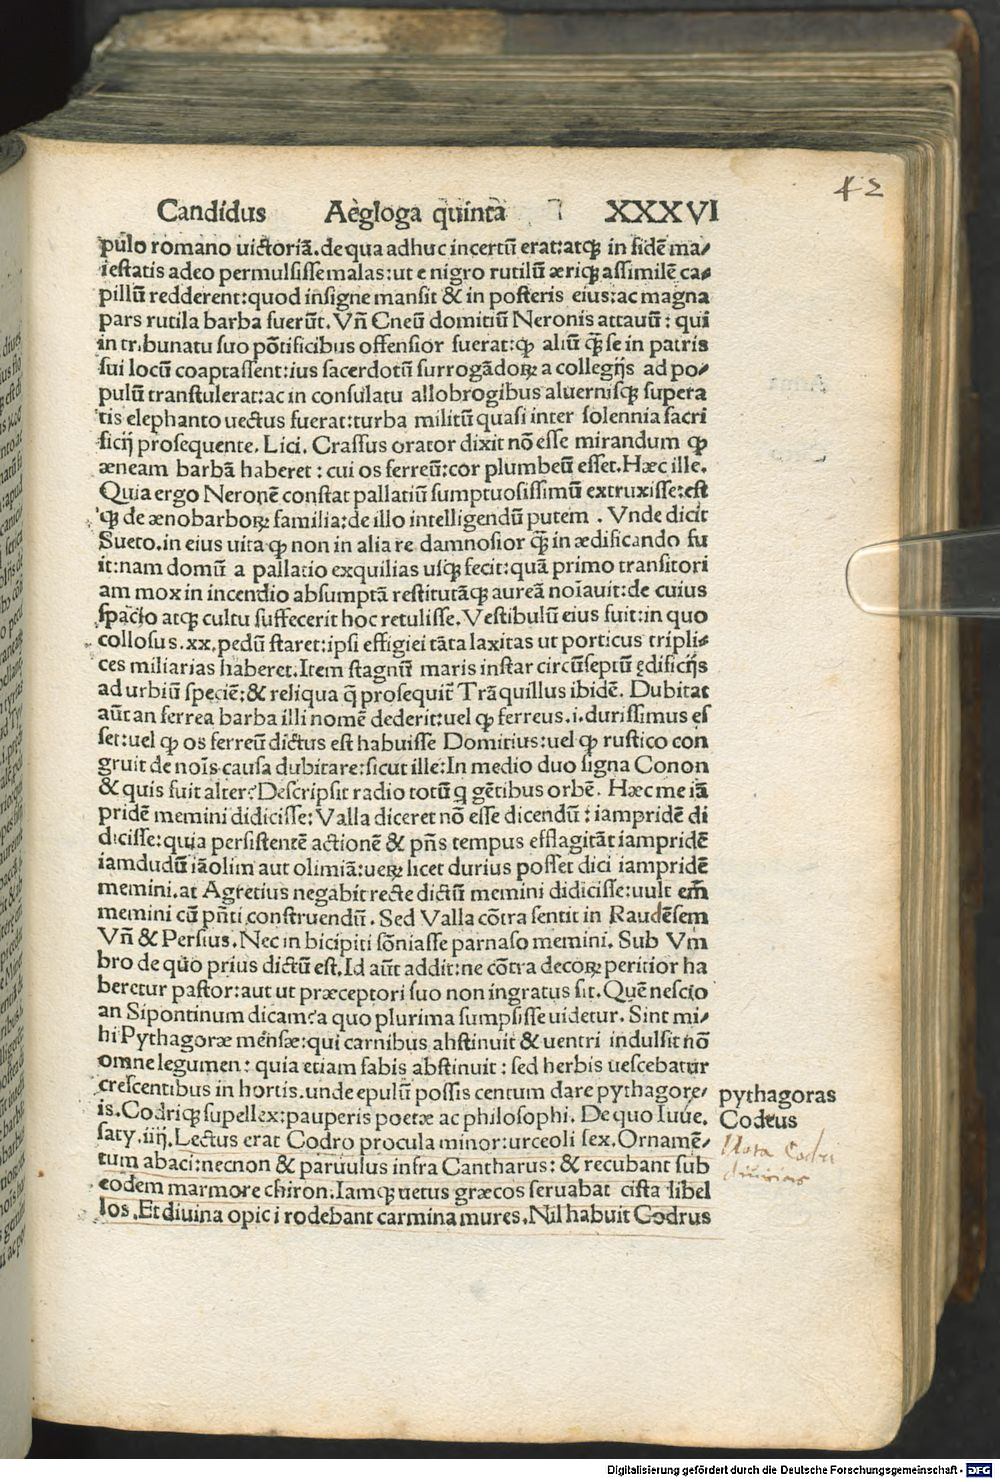 42
Candidus Aegloga quinta XXXVI
pulo romano uictoriā. de qua adhuc incertū erat: atq; in fidē ma/
iestatis adeo permulsisse malas: ut e nigro rutilū æriq; assimilē ca/
pillū redderent: quod insigne mansit & in posteris eius: ac magna
pars rutila barba fuerūt. Vñ Cneū domitiū Neronis attauū: qui
in tribunatu suo pōtificibus offensior fuerat: ꝙ aliū q̄ se in patris
sui locū coaptassent: ius sacerdotū surrogādoꝝ a collegijs ad po/
pulū transtulerat: ac in consulatu allobrogibus aluernisq; supera
tis elephanto uectus fuerat: turba militū quasi inter solennia sacri
ficij prosequente. Lici. Crassus orator dixit nō esse mirandum ꝙ
æneam barbā haberet: cui os ferreū: cor plumbeū esset. Hæc ille.
Quia ergo Neronē constat pallatiū sumptuosissimū extruxisse: est
q; de ænobarboꝝ familia: de illo intelligendū putem. Vnde dicit
Sueto. in eius uita ꝙ non in alia re damnosior q̄ in ædificando fu
it: nam domū a pallatio exquilias usq; fecit: quā primo transitori
am mox in incendio absumptā restitutāq; aureā noīauit: de cuius
spacio atq; cultu suffecerit hoc retulisse. Vestibulū eius fuit: in quo
collosus .xx. pedū staret: ipsi effigiei tāta laxitas ut porticus tripli/
ces miliarias haberet. Item stagnū maris instar circūseptū ędificijs
ad urbiū speciē: & reliqua q̄ prosequit̃ Trāquillus ibidē. Dubitat
aūt an ferrea barba illi nomē dederit: uel ꝙ ferreus .i. durissimus es
set: uel ꝙ os ferreū dictus est habuisse Domitius: uel ꝙ rustico con
gruit de nois causa dubitare: sicut ille: In medio duo signa Conon
& quis fuit alter? Descripsit radio totū q gētibus orbē. Hæc me iā
pridē memini didicisse: Valla diceret nō esse dicendū: iampridē di
dicisse: quia persistentē actionē & pñs tempus efflagitāt iampridē
iamdudū iāolim aut olimiā: ueꝝ licet durius posset dici iampridē
memini. at Agretius negabit recte dictū memini didicisse: uult em̄
memini cū pñti construendū. Sed Valla cōtra sentit in Raudēsem
Vñ & Persius. Nec in bicipiti sōniasse parnaso memini. Sub Vm
bro de quo prius dictū est. Id aūt addit: ne cōtra decoꝝ peritior ha
beretur pastor: aut ut præceptori suo non ingratus sit. Quē nescio
an Sipontinum dicam: a quo plurima sumpsisse uidetur. Sint mi/
hi Pythagoræ mēsæ: qui carnibus abstinuit & uentri indulsit nō
omne legumen: quia etiam fabis abstinuit: sed herbis uescebatur
crescentibus in hortis. unde epulū possis centum dare pythagore/
is. Codriq; supellex: pauperis poetæ ac philosophi. De quo Iuue.
saty. iiij. Lectus erat Codro procula minor: urceoli sex. Ornamē/
tum abaci: necnon & paruulus infra Cantharus: & recubans sub
eodem marmore chiron. Iamq; uetus græcos seruabat cista libel
los. Et diuina opici rodebant carmina mures. Nil habuit Codrus
pythagoras
Codrus
Nota Codri
diuitias
Digitalisierung gefördert durch die Deutsche Forschungsgemeinschaft - DFG